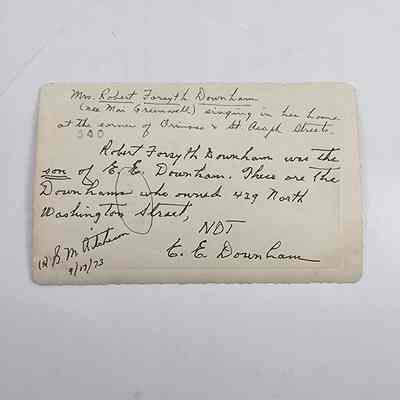 Mrs. Robert Forsyth Downham
(nee Mai Greenwell) singing in her home
at the corner of Princess & St Asaph Streets.
540
Robert Forsyth Downham was the
son of E. E. Downham. These are the
Downhams who owned 429 North
Washington Street,
NOT
E. E Downham
B. M
9/17/73